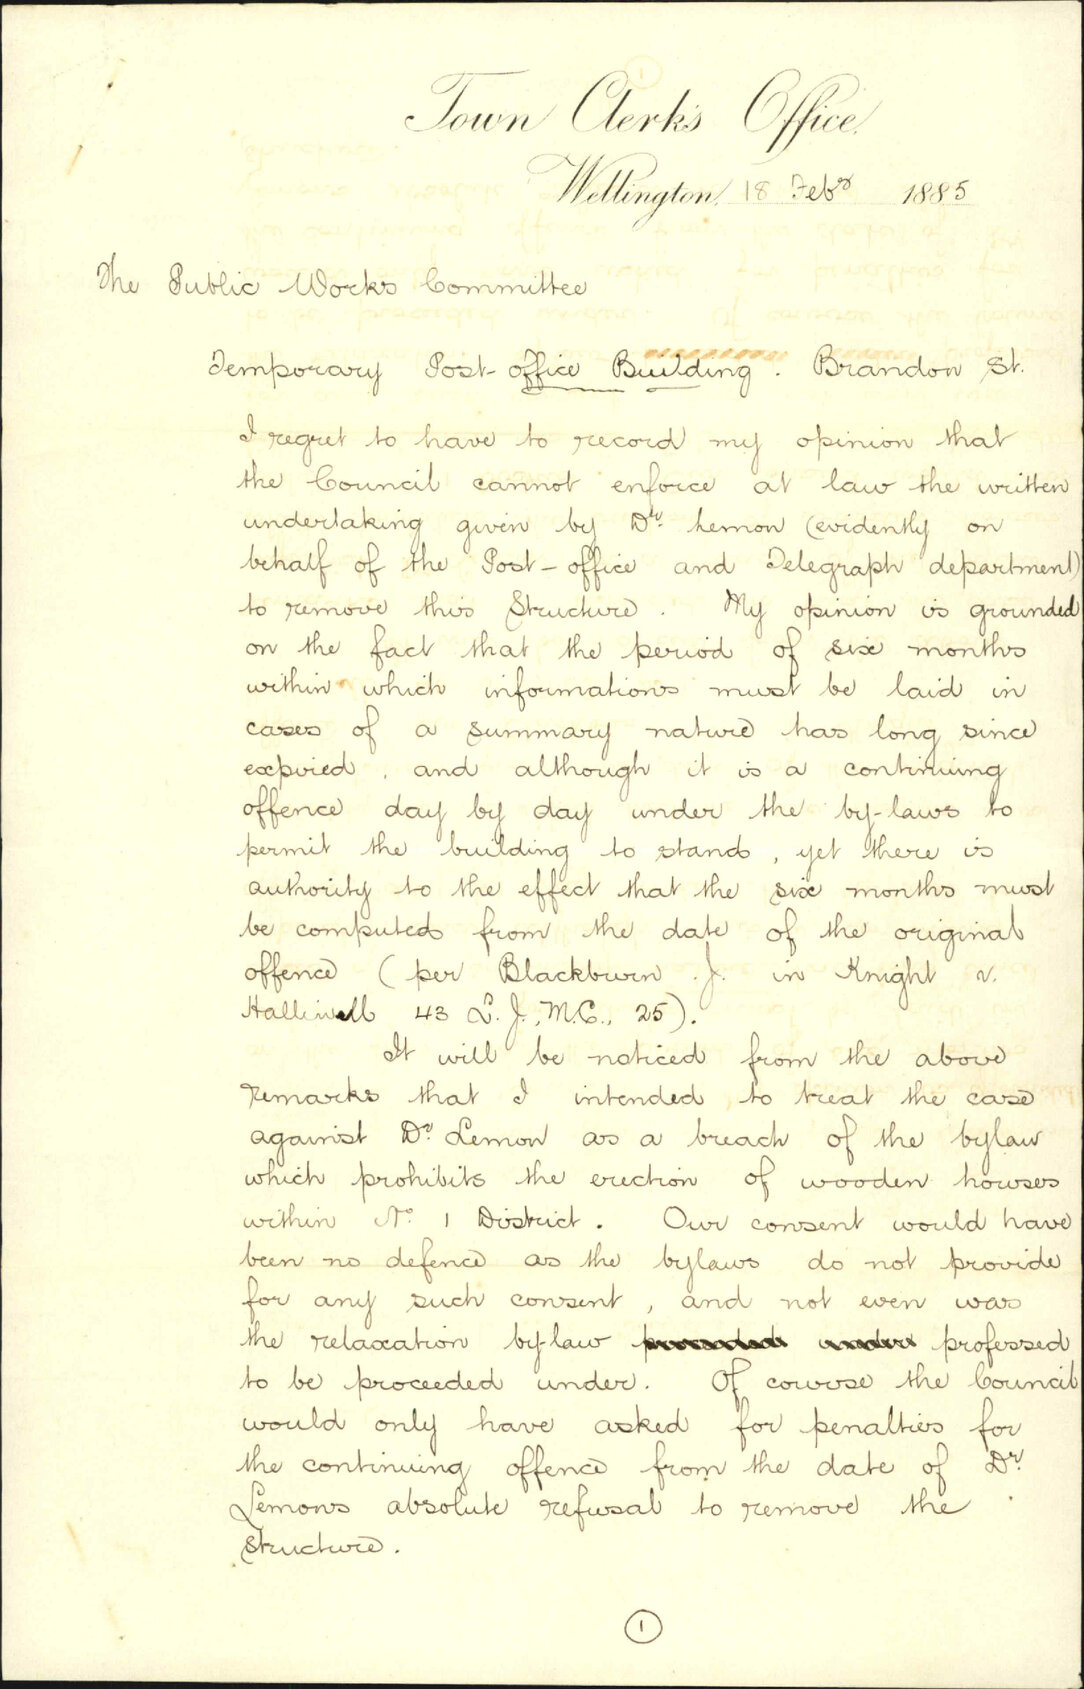 Town Clerk's Office.
Wellington, 18 Febr 1885
The Public Works Committee
Temporary Post-office Building. Brandon St.
I regret to have to record my opinion that
the Council cannot enforce at law the written
undertaking given by Dr. Lemon (evidently on
behalf of the Post-office and Telegraph department)
to remove this structure. My opinion is grounded
on the fact that the period of six months
within which informations must be laid in
cases of a summary nature has long since
expired, and although it is a continuing
offence day by day under the by-laws to
permit the building to stand, yet there is
authority to the effect that the six months must
be computed from the date of the original
offence (per Blackburn J. in Knight v.
Halliwell 43 L.J., M.C., 25).
It will be noticed from the above
remarks that I intended to treat the case
against Dr. Lemon as a breach of the bylaw
which prohibits the erection of wooden houses
within No. 1 District. Our consent would have
been no defence as the bylaws do not provide
for any such consent, and not even was
the relaxation by-law professed
to be proceeded under. Of course the Council
would only have asked for penalties for
the continuing offence from the date of Dr.
Lemons absolute refusal to remove the
structure.
1